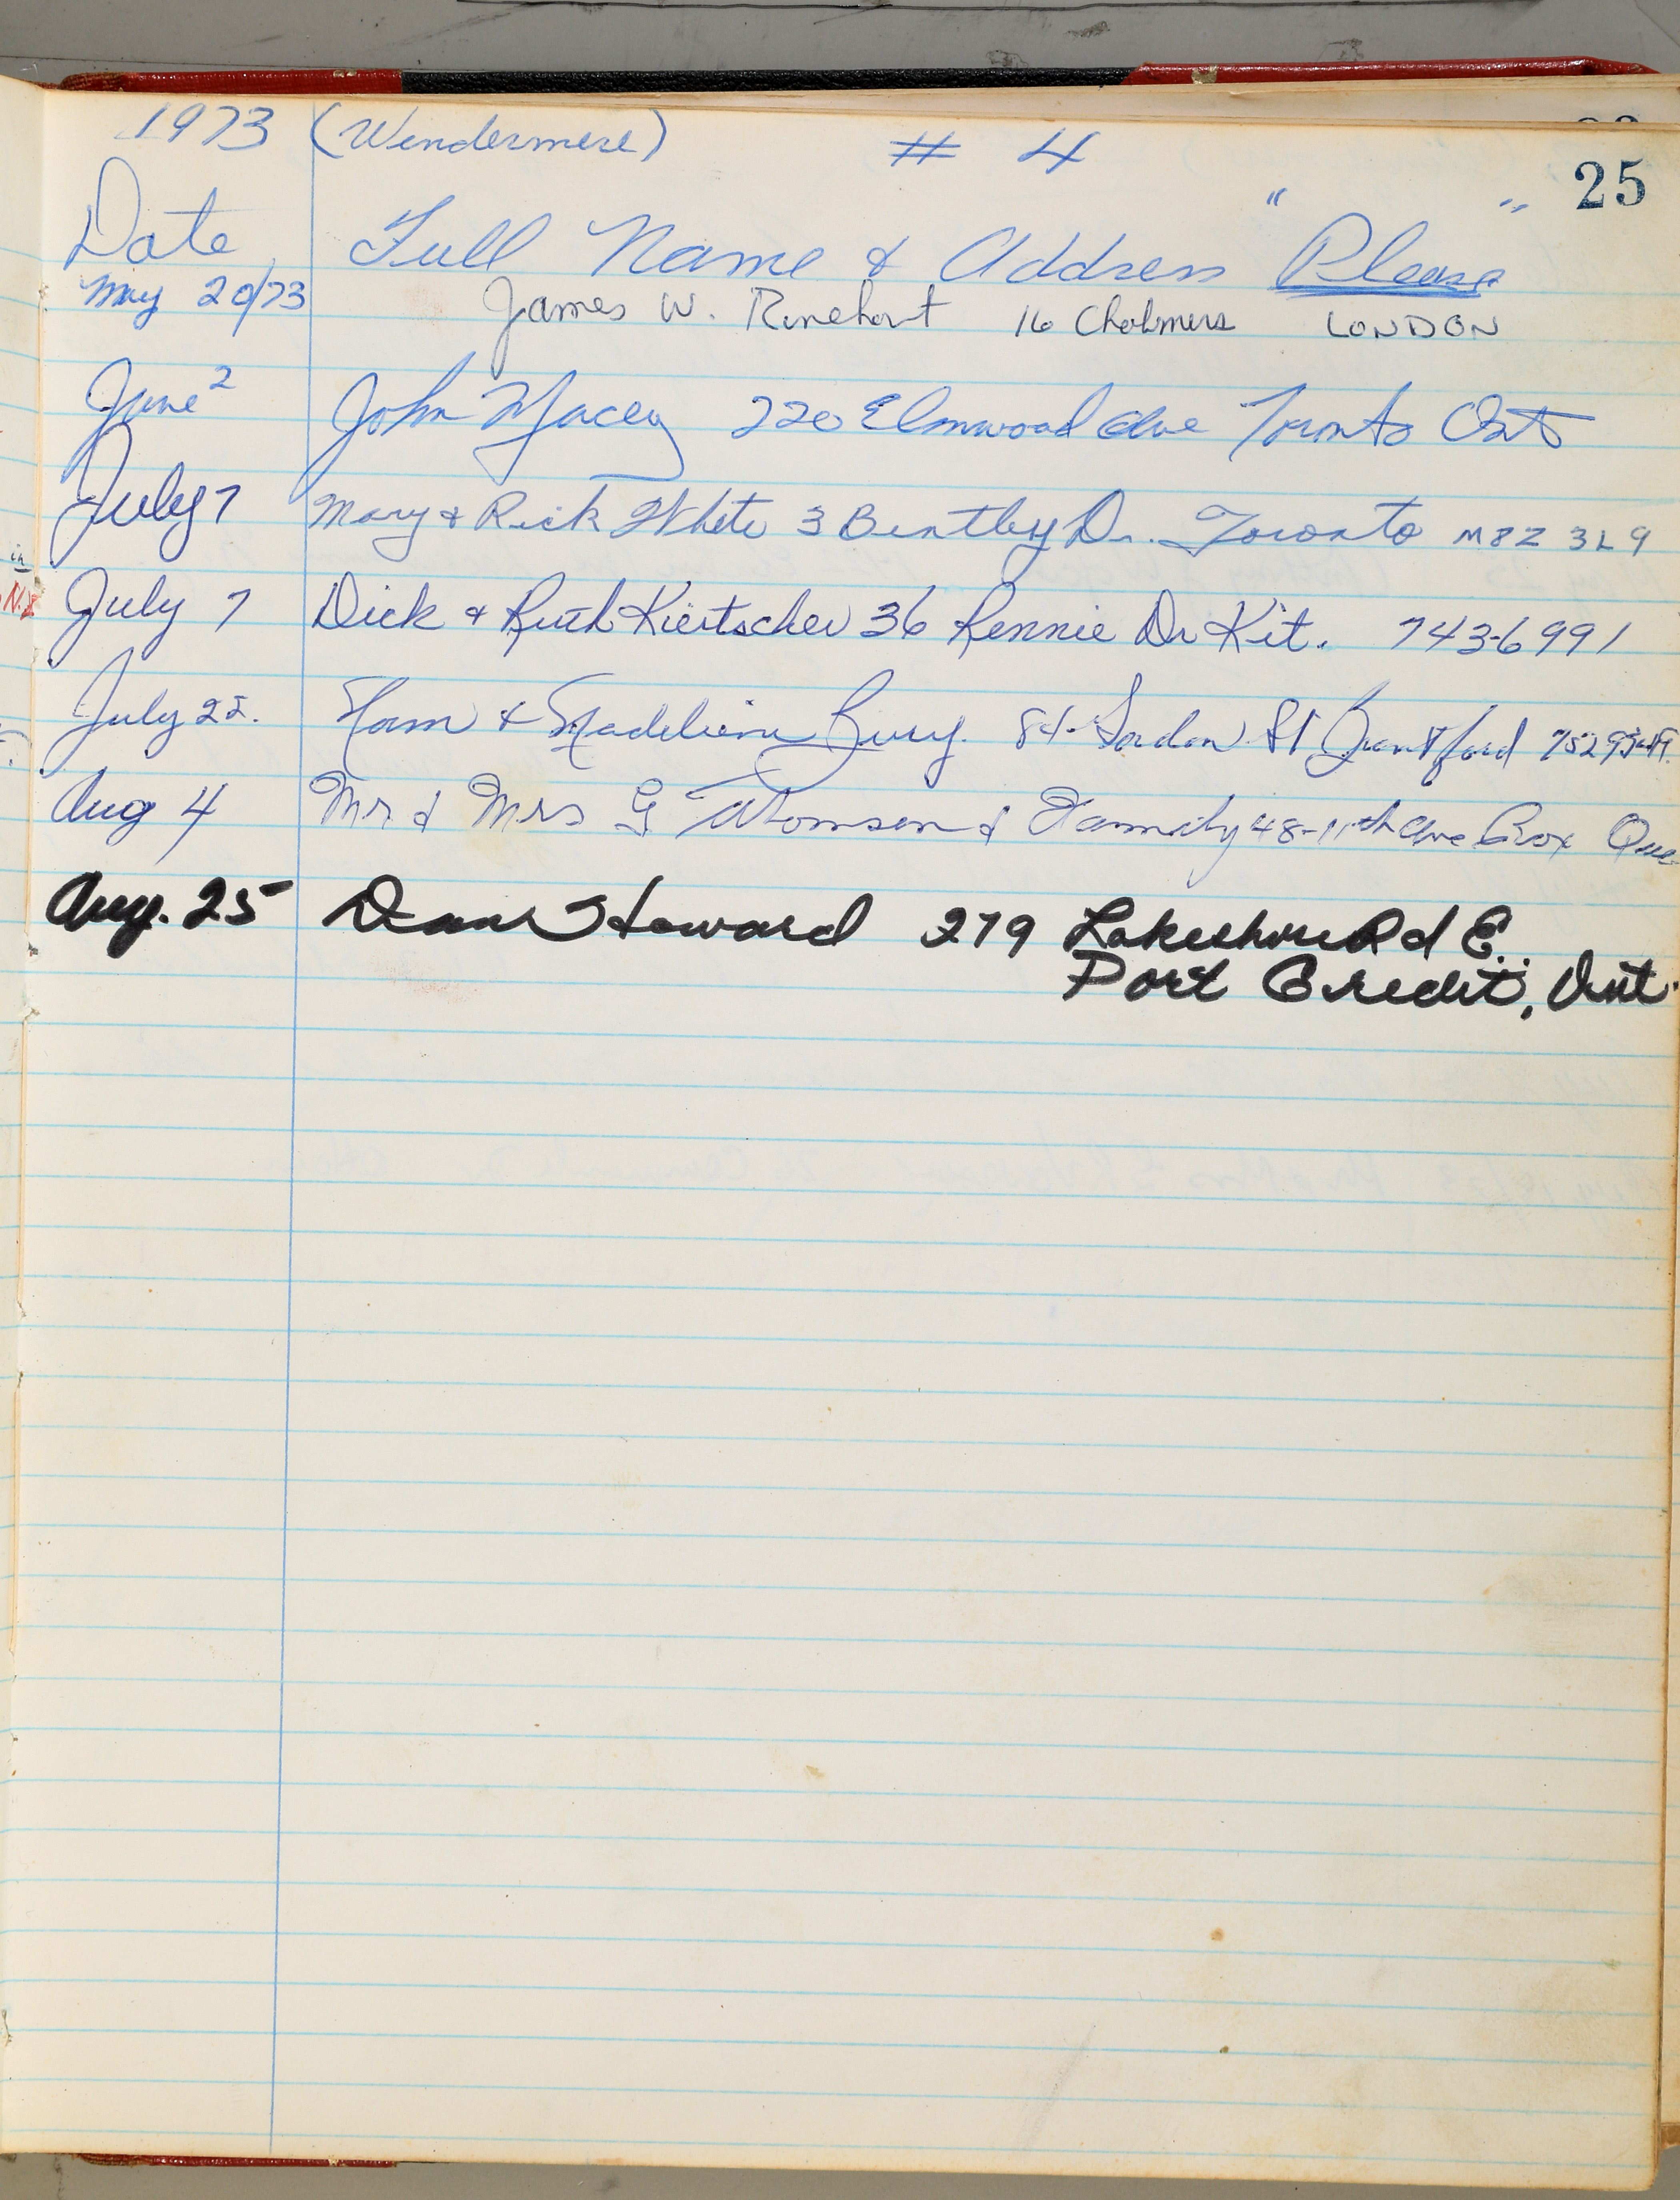 25
1973 (Windermere) # 4
Date Full Name & Address "Please"
May 20/73 James W. Rinehart 16 Chalmers LONDON
June 2 John Macey 220 Elmwood Ave Toronto Ont
July 7 Mary & Rick White 3 Bentley Dr. Toronto M8Z 3L9
July 7 Dick & Ruth Kiertscher 36 Rennie Dr Kit. 743-6991
July 22. Norm & Madeleine Bury. 84 St Brantford
Aug 4 Mr & Mrs G Thomsen & Family 48-11th Ave Que
Aug. 25 Dean Howard 279 Lakeshore Rd E.
Port Credit, Ont.